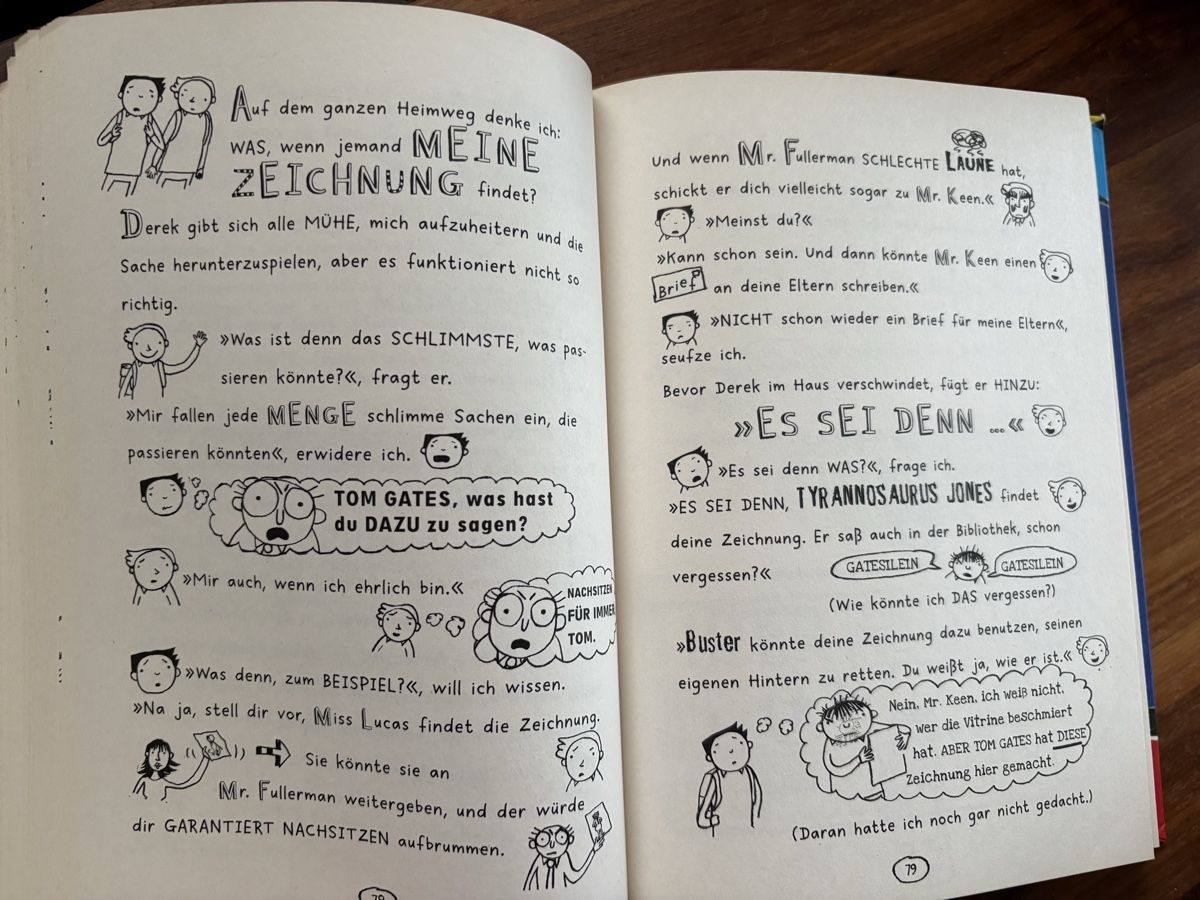 Auf dem ganzen Heimweg denke ich:
WAS, wenn jemand MEINE
ZEICHNUNG findet?
Derek gibt sich alle MÜHE, mich aufzuheitern und die
Sache herunterzuspielen, aber es funktioniert nicht so
richtig.
»Was ist denn das SCHLIMMSTE, was pas-
sieren könnte?«, fragt er.
»Mir fallen jede MENGE schlimme Sachen ein, die
passieren könnten«, erwidere ich.
TOM GATES, was hast
du DAZU zu sagen?
»Mir auch, wenn ich ehrlich bin.«
NACHSITZEN
FÜR IMMER
TOM.
»Was denn, zum BEISPIEL?«, will ich wissen.
»Na ja, stell dir vor, Miss Lucas findet die Zeichnung.
Sie könnte sie an
Mr. Fullerman weitergeben, und der würde
dir GARANTIERT NACHSITZEN aufbrummen.
Und wenn Mr. Fullerman SCHLECHTE LAUNE hat,
schickt er dich vielleicht sogar zu Mr. Keen.«
»Meinst du?«
»Kann schon sein. Und dann könnte Mr. Keen einen
Brief an deine Eltern schreiben.«
»NICHT schon wieder ein Brief für meine Eltern«,
seufze ich.
Bevor Derek im Haus verschwindet, fügt er HINZU:
»ES SEI DENN ...«
»Es sei denn WAS?«, frage ich.
»ES SEI DENN, TYRANNOSAURUS JONES findet
deine Zeichnung. Er saß auch in der Bibliothek, schon
vergessen?«
GATESILEIN
GATESILEIN
(Wie könnte ich DAS vergessen?)
»Buster könnte deine Zeichnung dazu benutzen, seinen
eigenen Hintern zu retten. Du weißt ja, wie er ist.«
Nein, Mr. Keen, ich weiß nicht,
wer die Vitrine beschmiert
hat. ABER TOM GATES hat DIESE
Zeichnung hier gemacht.
(Daran hatte ich noch gar nicht gedacht.)
79